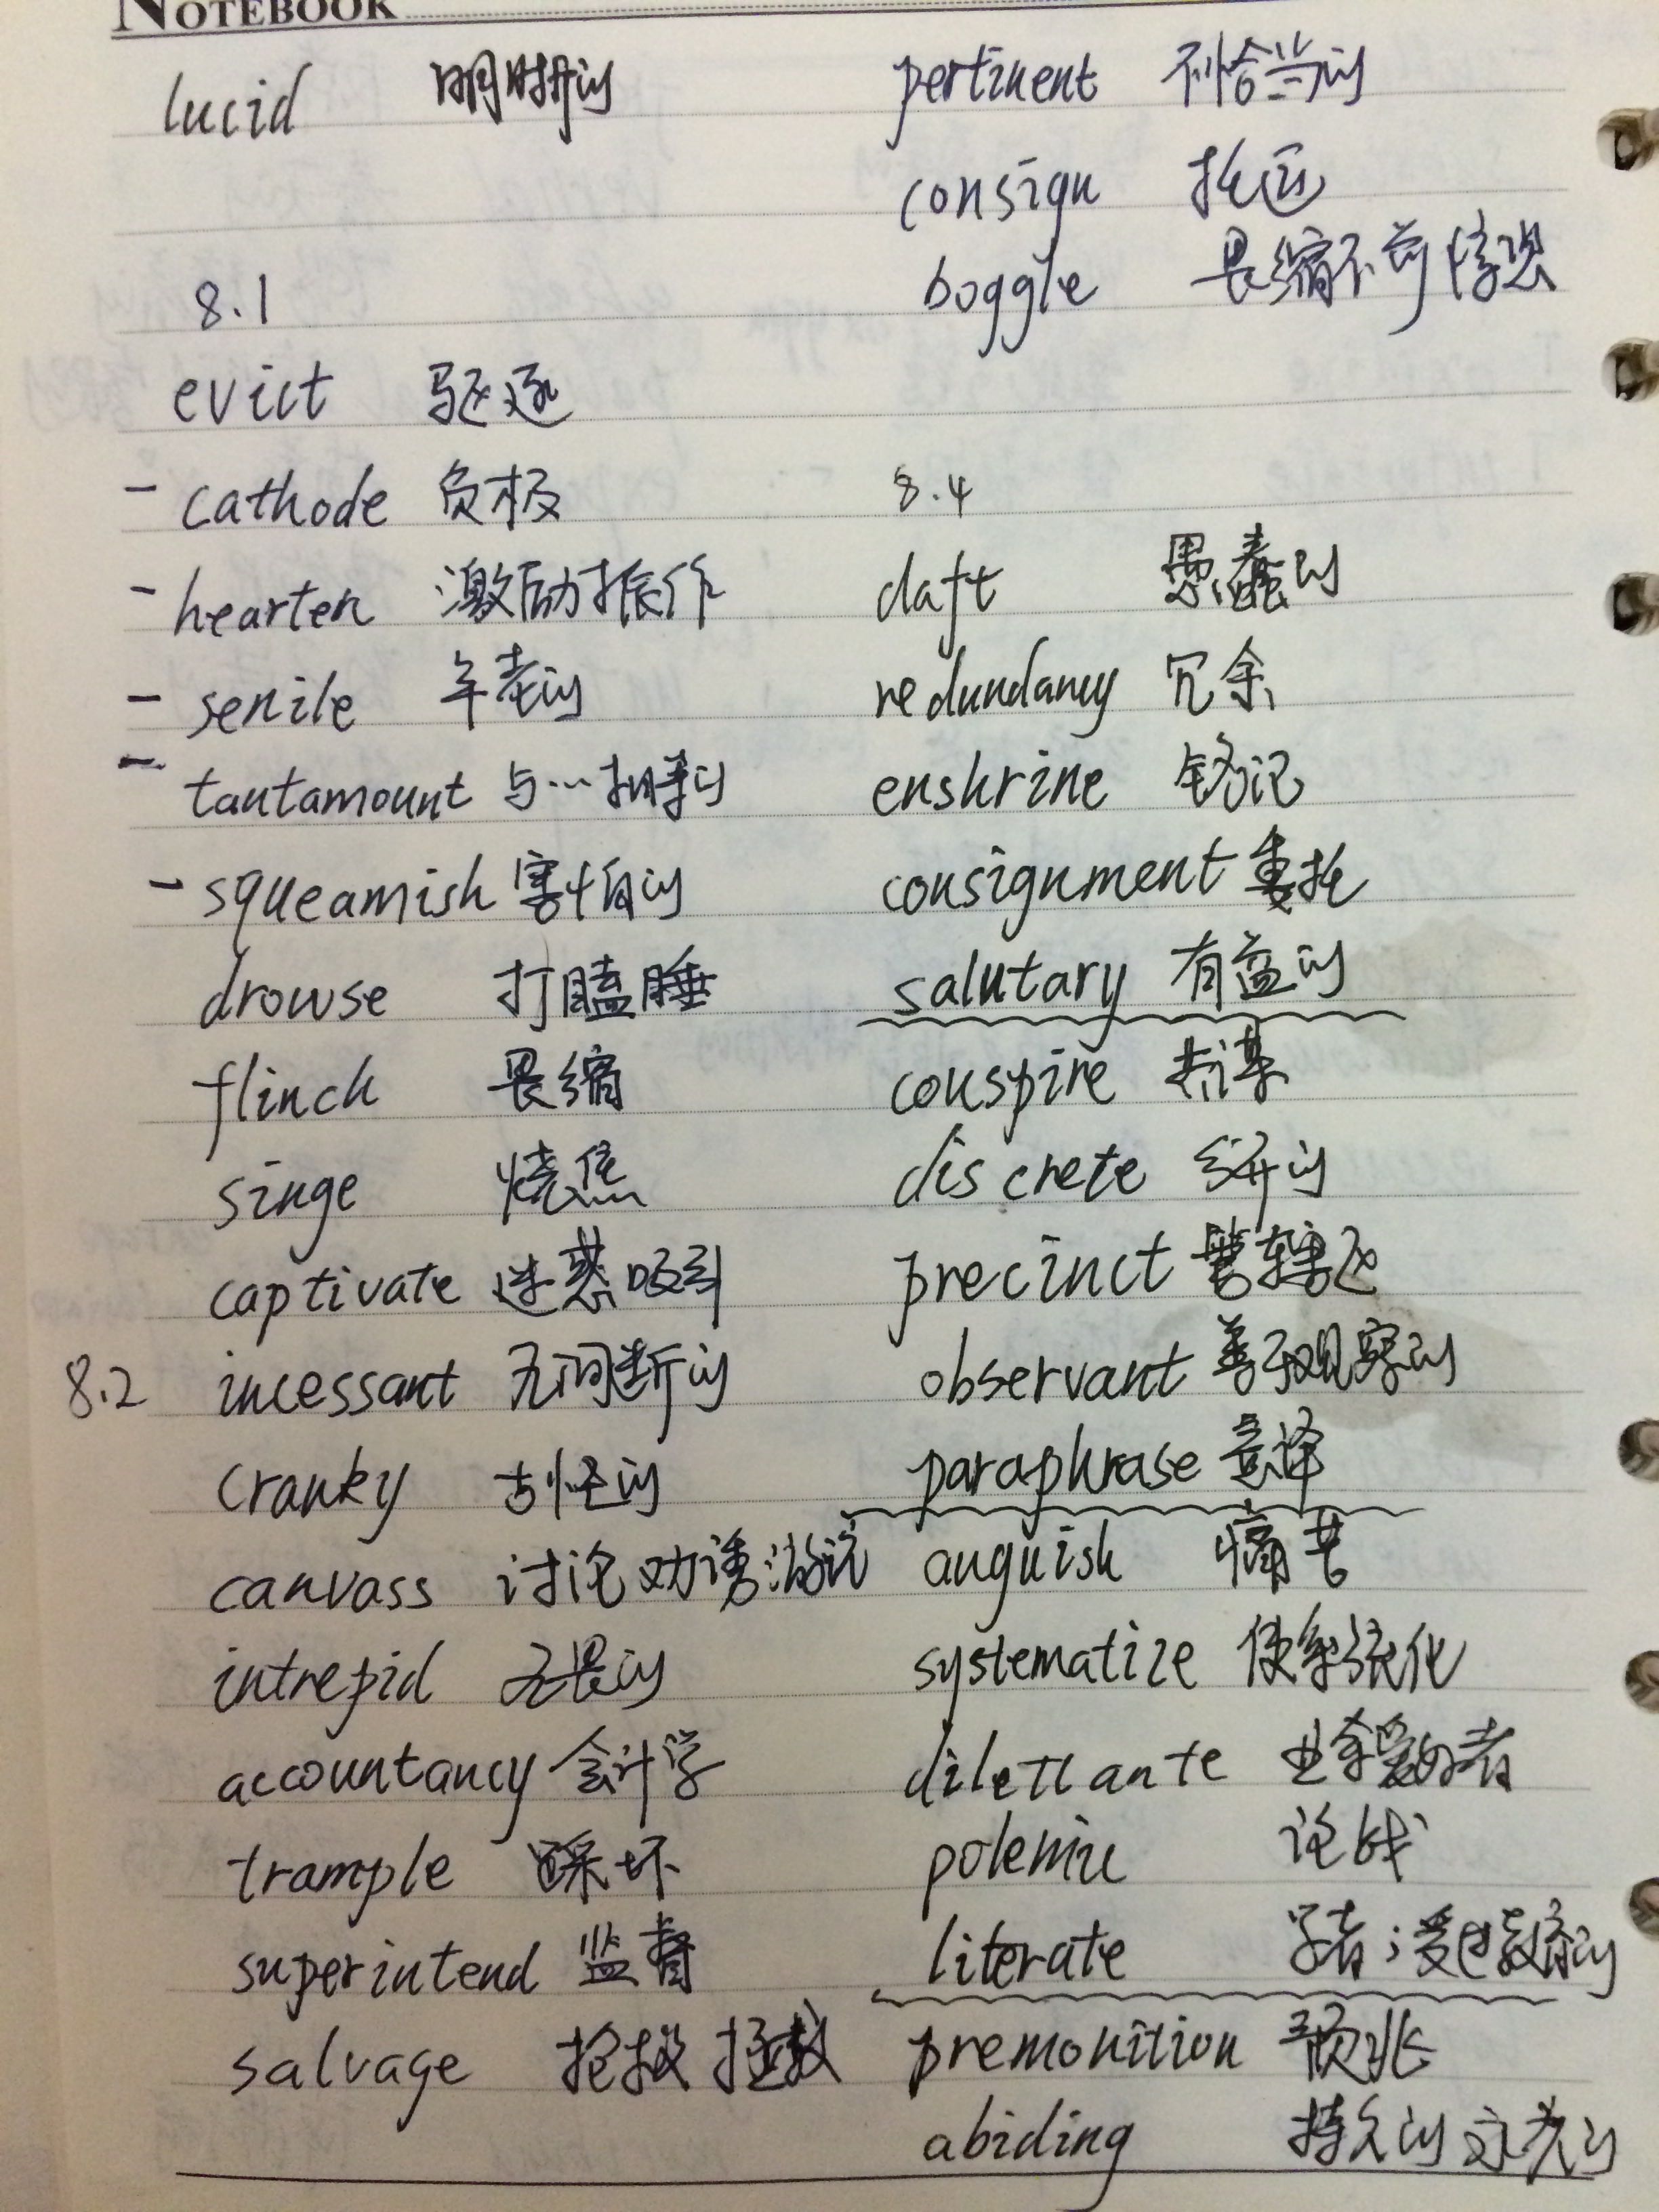 NOTEBOOK
lucid 明晰的
8.1
evict 驱逐
- cathode 负极
- hearten 激励振作
- senile 年老的
- tantamount 与…相等的
- squeamish 害怕的
drowse 打瞌睡
flinch 畏缩
singe 烧焦
captivate 迷惑 吸引
8.2 incessant 无间断的
cranky 古怪的
canvass 讨论 劝诱 游说
intrepid 无畏的
accountancy 会计学
trample 踩坏
superintend 监督
salvage 抢救 拯救
pertinent 恰当的
consign 托运
boggle 畏缩不前 惊恐
8.4
daft 愚蠢的
redundancy 冗余
enshrine 铭记
consignment 委托
salutary 有益的
conspire 共谋
discrete 分开的
precinct 管辖区
observant 善于观察的
paraphrase 意译
anguish 痛苦
systematize 使系统化
dilettante 业余爱好者
polemic 论战
literate 学者；受过教育的
premonition 预兆
abiding 持久的